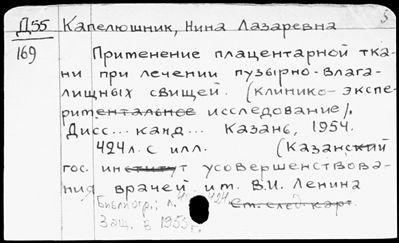 Д55 Капелюшник, Нина Лазаревна
169 Применение плацентарной тка-
ни при лечении пузырно-влага-
лищных свищей. (клинико-экспе-
риментальное исследование).
Дисс... канд... Казань, 1954.
424л. с илл. (Казанский
гос. институт усовершенствова-
ния врачей им. В.И. Ленина
Библиогр.: л. 424
См. след. карт.
Защ. в 1955г.